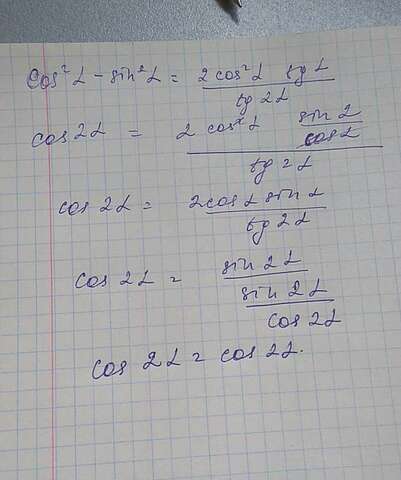 cos²α - sin²α = 2 cos²α tg α / tg 2α
cos 2α = 2 cos²α sin α / cos α / tg 2α
cos 2α = 2cos α sin α / tg 2α
cos 2α = sin 2α / sin 2α / cos 2α
cos 2α = cos 2α.